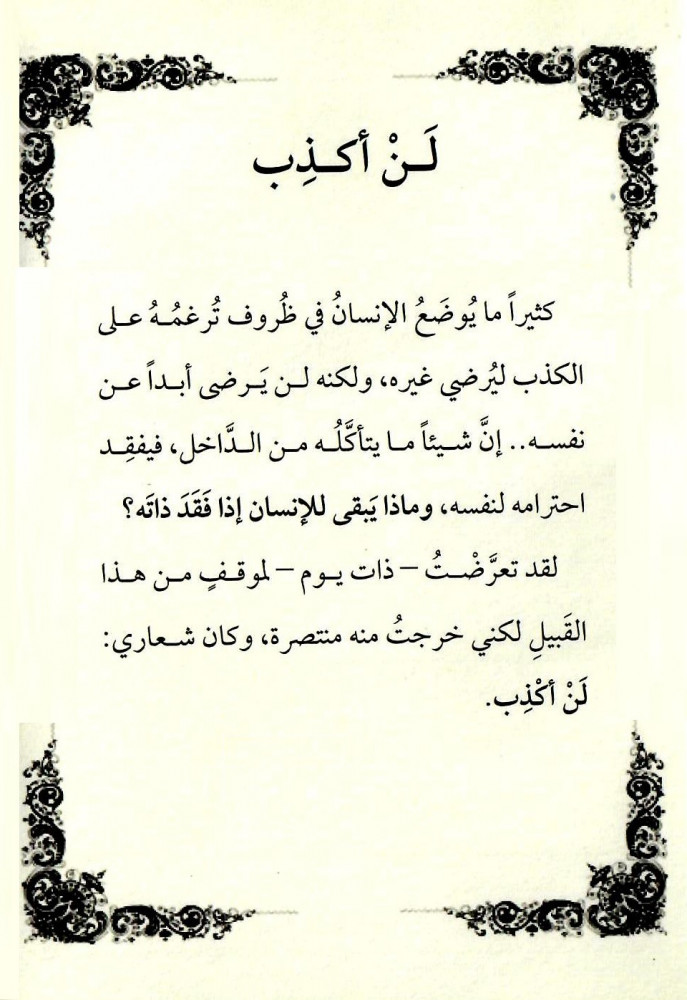 لَـنْ أكـذِب
كثيراً ما يُوضَعُ الإنسانُ في ظُروف تُرغمُـهُ عـلى
الكذب ليُرضي غيره، ولكنه لـن يَـرضى أبـداً عـن
نفسـه.. إنَّ شـيئاً مـا يتأكَّلُـه مـن الـدَّاخل، فيفقِـد
احترامه لنفسه، وماذا يَبقى للإنسان إذا فَقَدَ ذاتَه؟
لقد تعرَّضْـتُ – ذات يـوم – لموقـفٍ مـن هـذا
القَبيلِ لكني خرجتُ منه منتصرة، وكان شـعاري:
لَنْ أكْذِب.